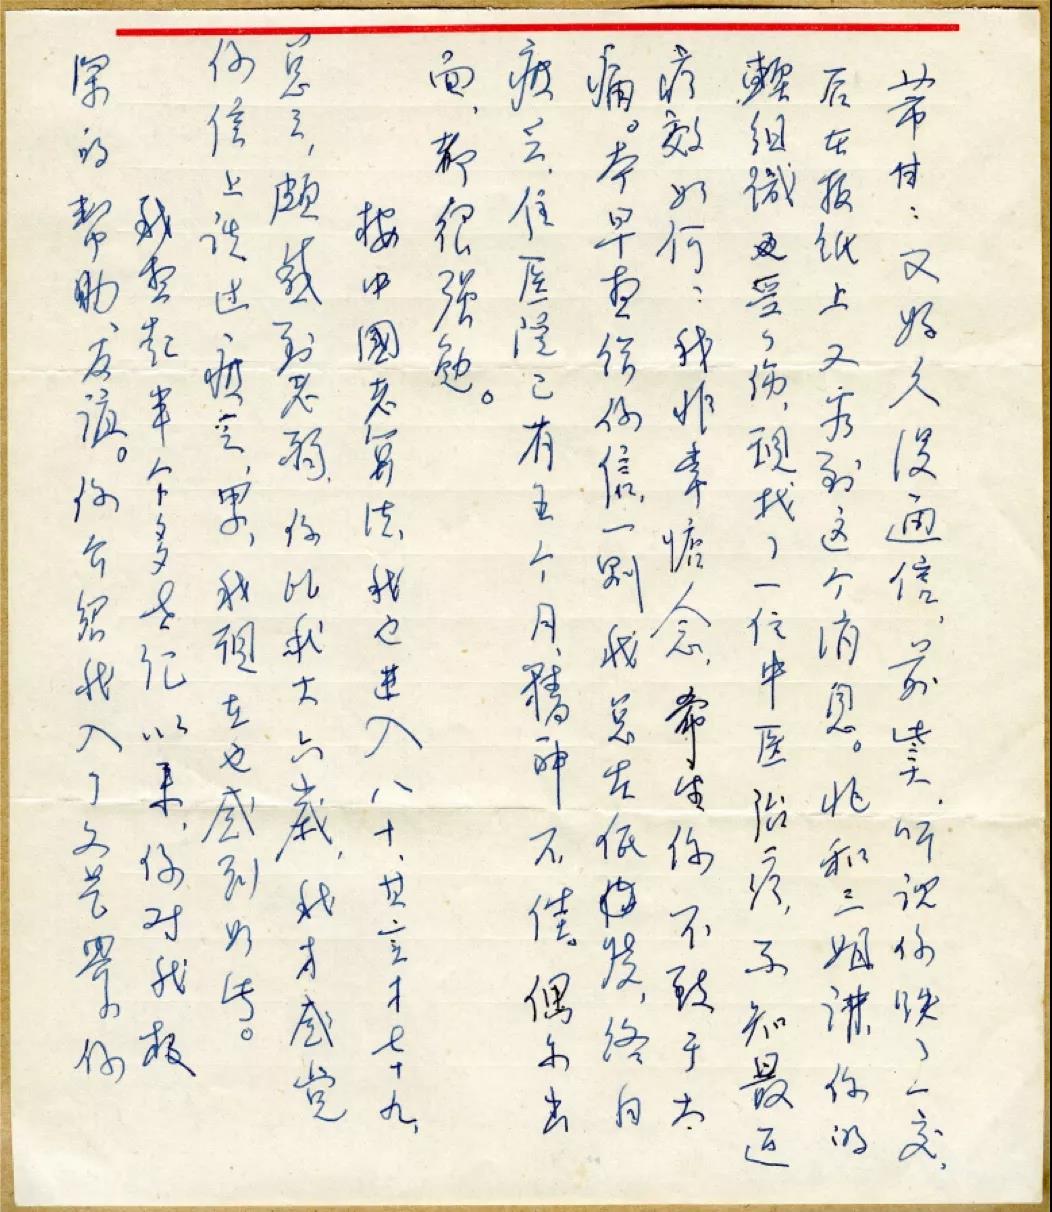 芾甘：又好久没通信，前些天，听说你跌了一交，
后在报纸上又看到这个消息。兆和三姐讲你的
软组织受了伤，现找了一位中医治疗，不知最近
疗效如何？我非常惦念，希望你不致于太
痛。本早想给你信，一则我总在低烧，终日
疲乏，住医院已有五个月，精神不佳。偶尔出
面，都很强勉。
按中國老算法，我也进入八十，其实才七十九，
总之，颇感到老弱，你比我大六岁，我才感觉
你信上说过，疲乏，累，我现在也感到如此。
我想起半个多世纪以来，你对我极
深的帮助、友谊。你介绍我入了文艺界，你